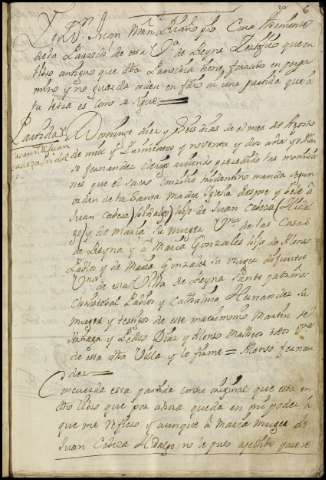 Yo Dn Juan Mrn
Cura theniente
de la Parroql de esta Va de Leyva Zertifico que en
libro antiguo que dha Parrochia tiene, forrado en perga
mino y no guarda orden en folio ai una partida que a
la letra es como se sigue
Partida
Domingo diez y
dias de el mes de Agosto
de mil y quinientos y noventa y dos años yo Alonso
fernandez Clerigo aviendo precedido las monicio
nes que el sacro Concilio tridentino manda y por
orden de la Santa Madre Iglesia despose y vele à
Juan Cabeza (hidalgo) hijo de Juan Cabeza (hidal
go) y de Maria su muger Vnos de las Casas
de Leyva y a Maria Gonzalez hija de Alonso
Pablos y de Maria Gonzalez su muger difuntos
Vnos
de esta Villa de Leyva fueron padrinos
Christobal Pablos y Catthalina Hernandez su
muger y testigos de este matrimonio Martin
y Pedro Diaz y Alonso Matheos todos Vnos
de esta dha Villa y lo firme = Alonso fernan
dez
Concuerda esta partida con su original que esta en
dho libro que por ahora queda en mi poder, à
que me refiero, y aunque à Maria muger de
Juan Cabeza Hidalgo, no le puso apellido